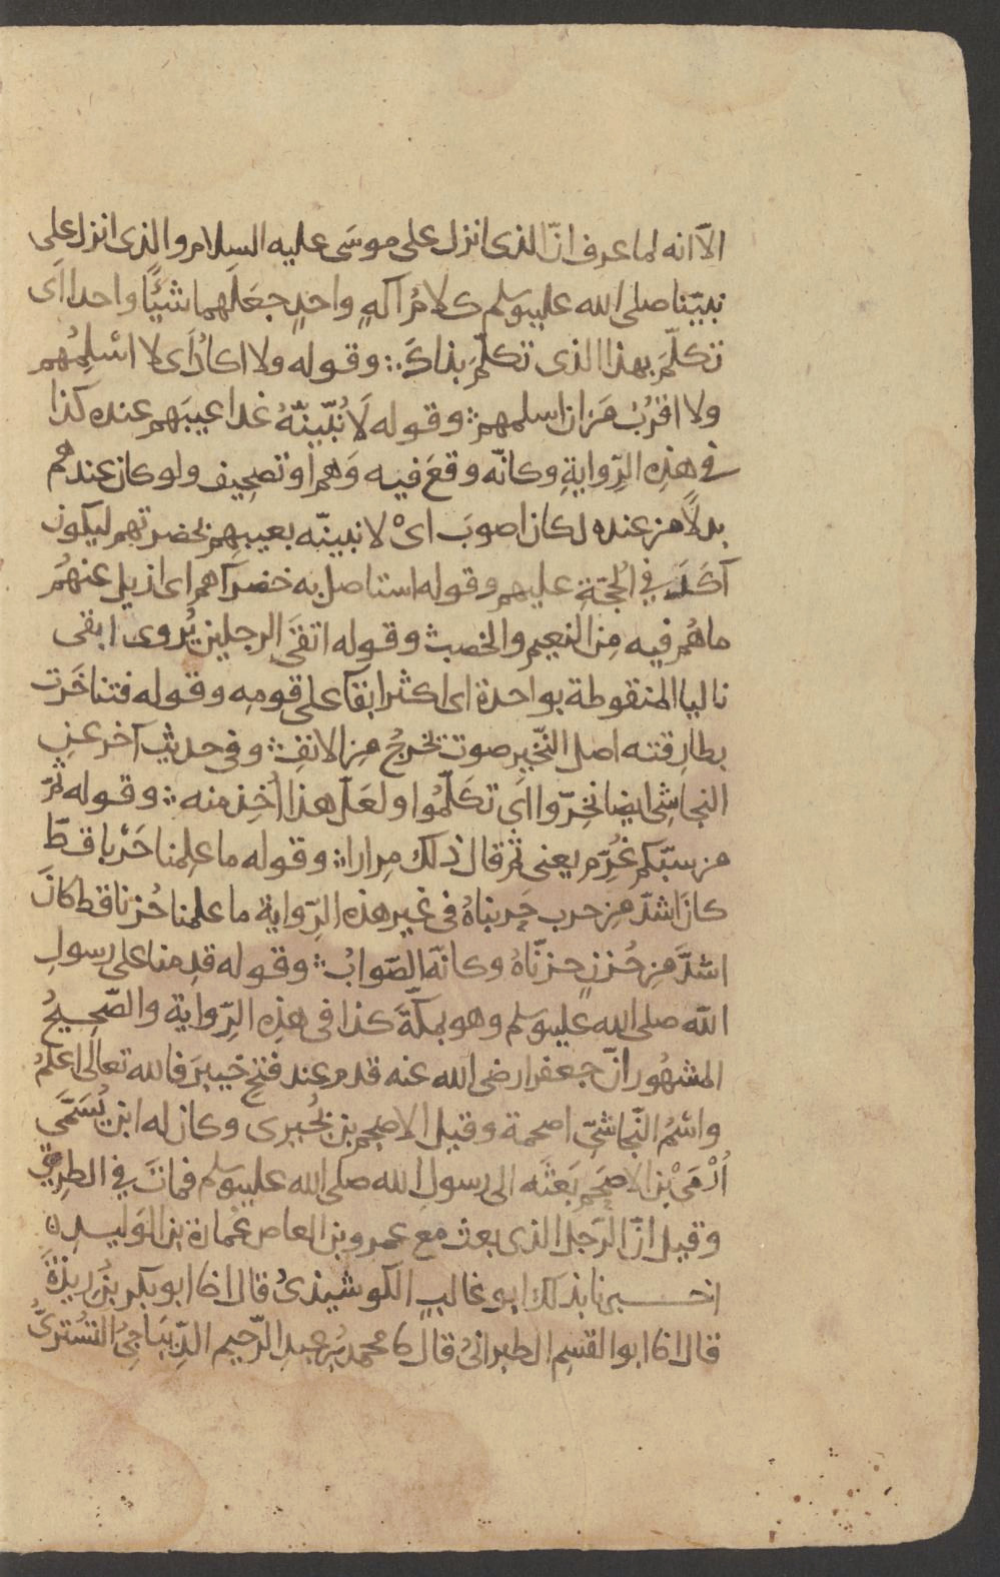 الّا انه لما عرف انّ الذى انزل على موسَى عليه السلام والذى انزل على
نبيّنا صلى الله عليه وسلم كلامُ آلهٍ واحدٍ جعَلَهما شيئًا واحدا اَى
تكلّمَ بهذا الذى تكلّمَ بذاكَ ؞ وقوله ولا اكادُ اَى لا اسْلِمُهم
ولا اقربُ مَن ان اسلمهم ؞ وقوله لَاُنُبّينّهُ غدا عيبَهم عنده كذا
فى هذه الرِّوايةِ وكانّه وقعَ فيه وَهم او تصحيف ولو كان عندهم
بدلًا من عنده لكان اصوبَ اىْ لانبينّه بعيبهم بحضرتهم ليكون
آكَدَ في الحُجّةِ عليهم وقوله استاصل به خضرآهم اى ازيل عنهُم
ما هُم فيه مِن النعيم والخصب ؞ وقوله اتقَى الرجلين يُروى ابقى
بالبا المنقوطة بواحدة اى اكثر ابقآ على قومِه وقوله فتناخَرت
بطارِقته اصل النّخير صوت يخرجُ مِن الانفِ ؞ وفى حديث آخر عن
النجاشِى ايضا نخِرّوا اَى تكلّمُوا ولعَلّ هذا اُخِذ منه ؞ وقوله ثمّ
من سبّكم غُرّم يعنى ثم قال ذلك مِرارا ؞ وقوله ما علِمنا حَرْبا قطّ
كانَ اشدّ مِن حرب حَرِبناهُ فى غير هذه الرِّواية ما علمنا حُزنا قط كانَ
اشدَّ مِن حُزنٍ حزنّاهُ وكانّه الصّوابُ ؞ وقوله قدِمنا على رسولِ
الله صلى الله عليه وسلم وهو بمكّةَ كذا فى هذِه الرّواية والصّحِيحُ
المشهُور انّ جعفرا رضى الله عنه قدم عند فتحِ خيبرَ فالله تعالى اعلمُ
واسْمُ النّجاشىّ اصحمة وقيل الاصحم بن بُحبرى وكان له ابن يُسَمَّى
اُرْمَى بْن الاصحَم بَعثَه الى رسولِ الله صلى الله عليه وسلم فماتَ في الطرِيقِ
وقيل انّ الرّجل الذى بعث مع عمرو بن العاص عُمارة بن الوَليدِ ؞
اخــبرنا بذلك ابو غالبٍ الكوشيذىُ قال انا ابو بكر بنُ ريذةَ
قال انا ابو القسِم الطبرانىُ قال نا محمد بن عبدِ الرّحيم الدِّيبَاجىُ التُسْتَرىُّ